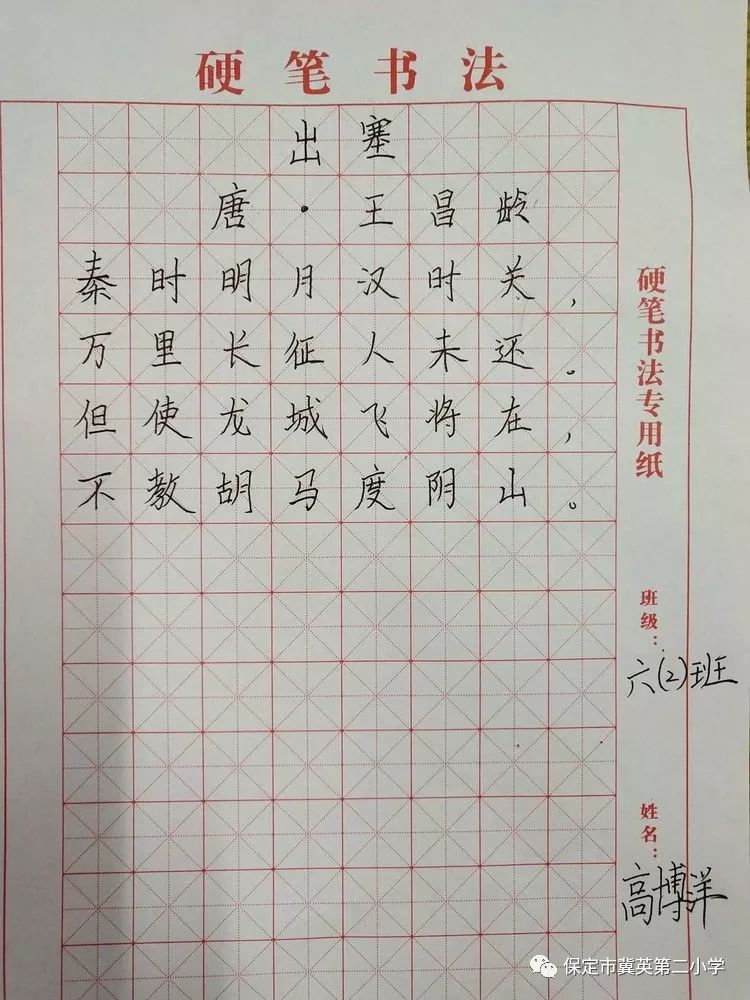 硬笔书法
出塞
唐·王昌龄
秦时明月汉时关，
万里长征人未还。
但使龙城飞将在，
不教胡马度阴山。
硬笔书法专用纸
班级：
六(2)班
姓名：
高博洋
保定市冀英第二小学